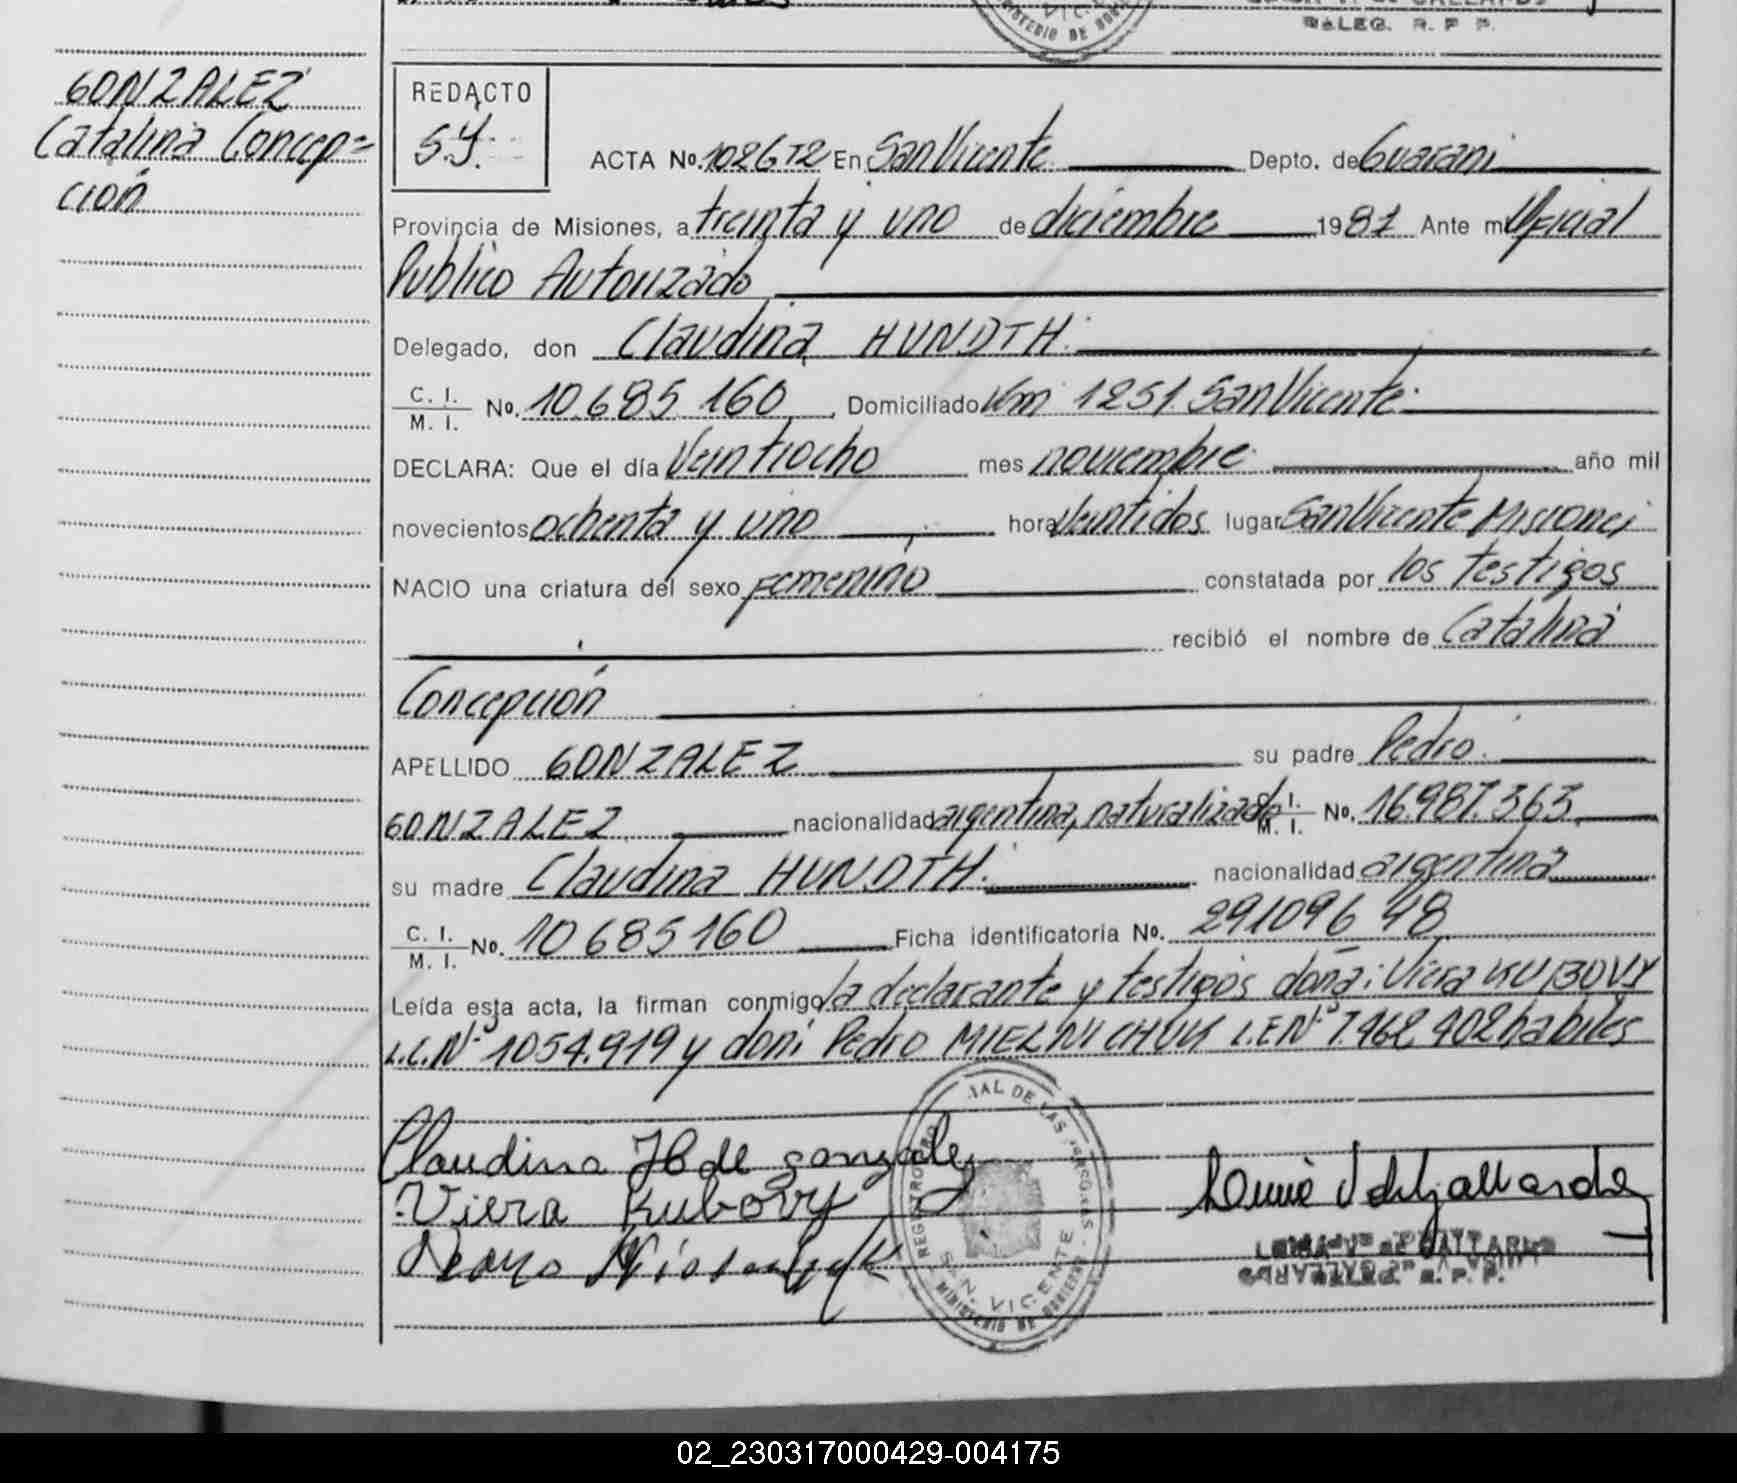 DELEG. R. P P.
GONZALEZ
Catalina Concep=
ción
REDACTO
S.J.
ACTA No. 1026 T2 En San Vicente Depto. de Guarani
Provincia de Misiones, a treinta y uno de diciembre 1981 Ante mi Oficial
Publico Autorizado
Delegado, don Claudina HUNDTH.
C. I. / M. I. No. 10.685.160 Domiciliado Km 1251. San Vicente.
DECLARA: Que el día Veintiocho mes noviembre año mil
novecientos ochenta y uno hora veintidos lugar San Vicente Misiones
NACIO una criatura del sexo femenino constatada por los testigos
recibió el nombre de Catalina
Concepción
APELLIDO GONZALEZ su padre Pedro.
GONZALEZ nacionalidad argentina, naturalizado C. I. / M. I. No. 16.987.363
su madre Claudina HUNDTH. nacionalidad argentina
C. I. / M. I. No. 10685160 Ficha identificatoria No. 291096 48
Leída esta acta, la firman conmigo la declarante y testigos doña: Viera KUBOVY
L.C.Nº 1054.919 y don: Pedro MIELNICHUK L.E Nº 7.462 402 habiles
Claudina H de gonzalez
Viera Kubovy
REGISTRO PROVINCIAL DE LAS PERSONAS
SAN VICENTE
MINISTERIO DE GOBIERNO
02_230317000429-004175